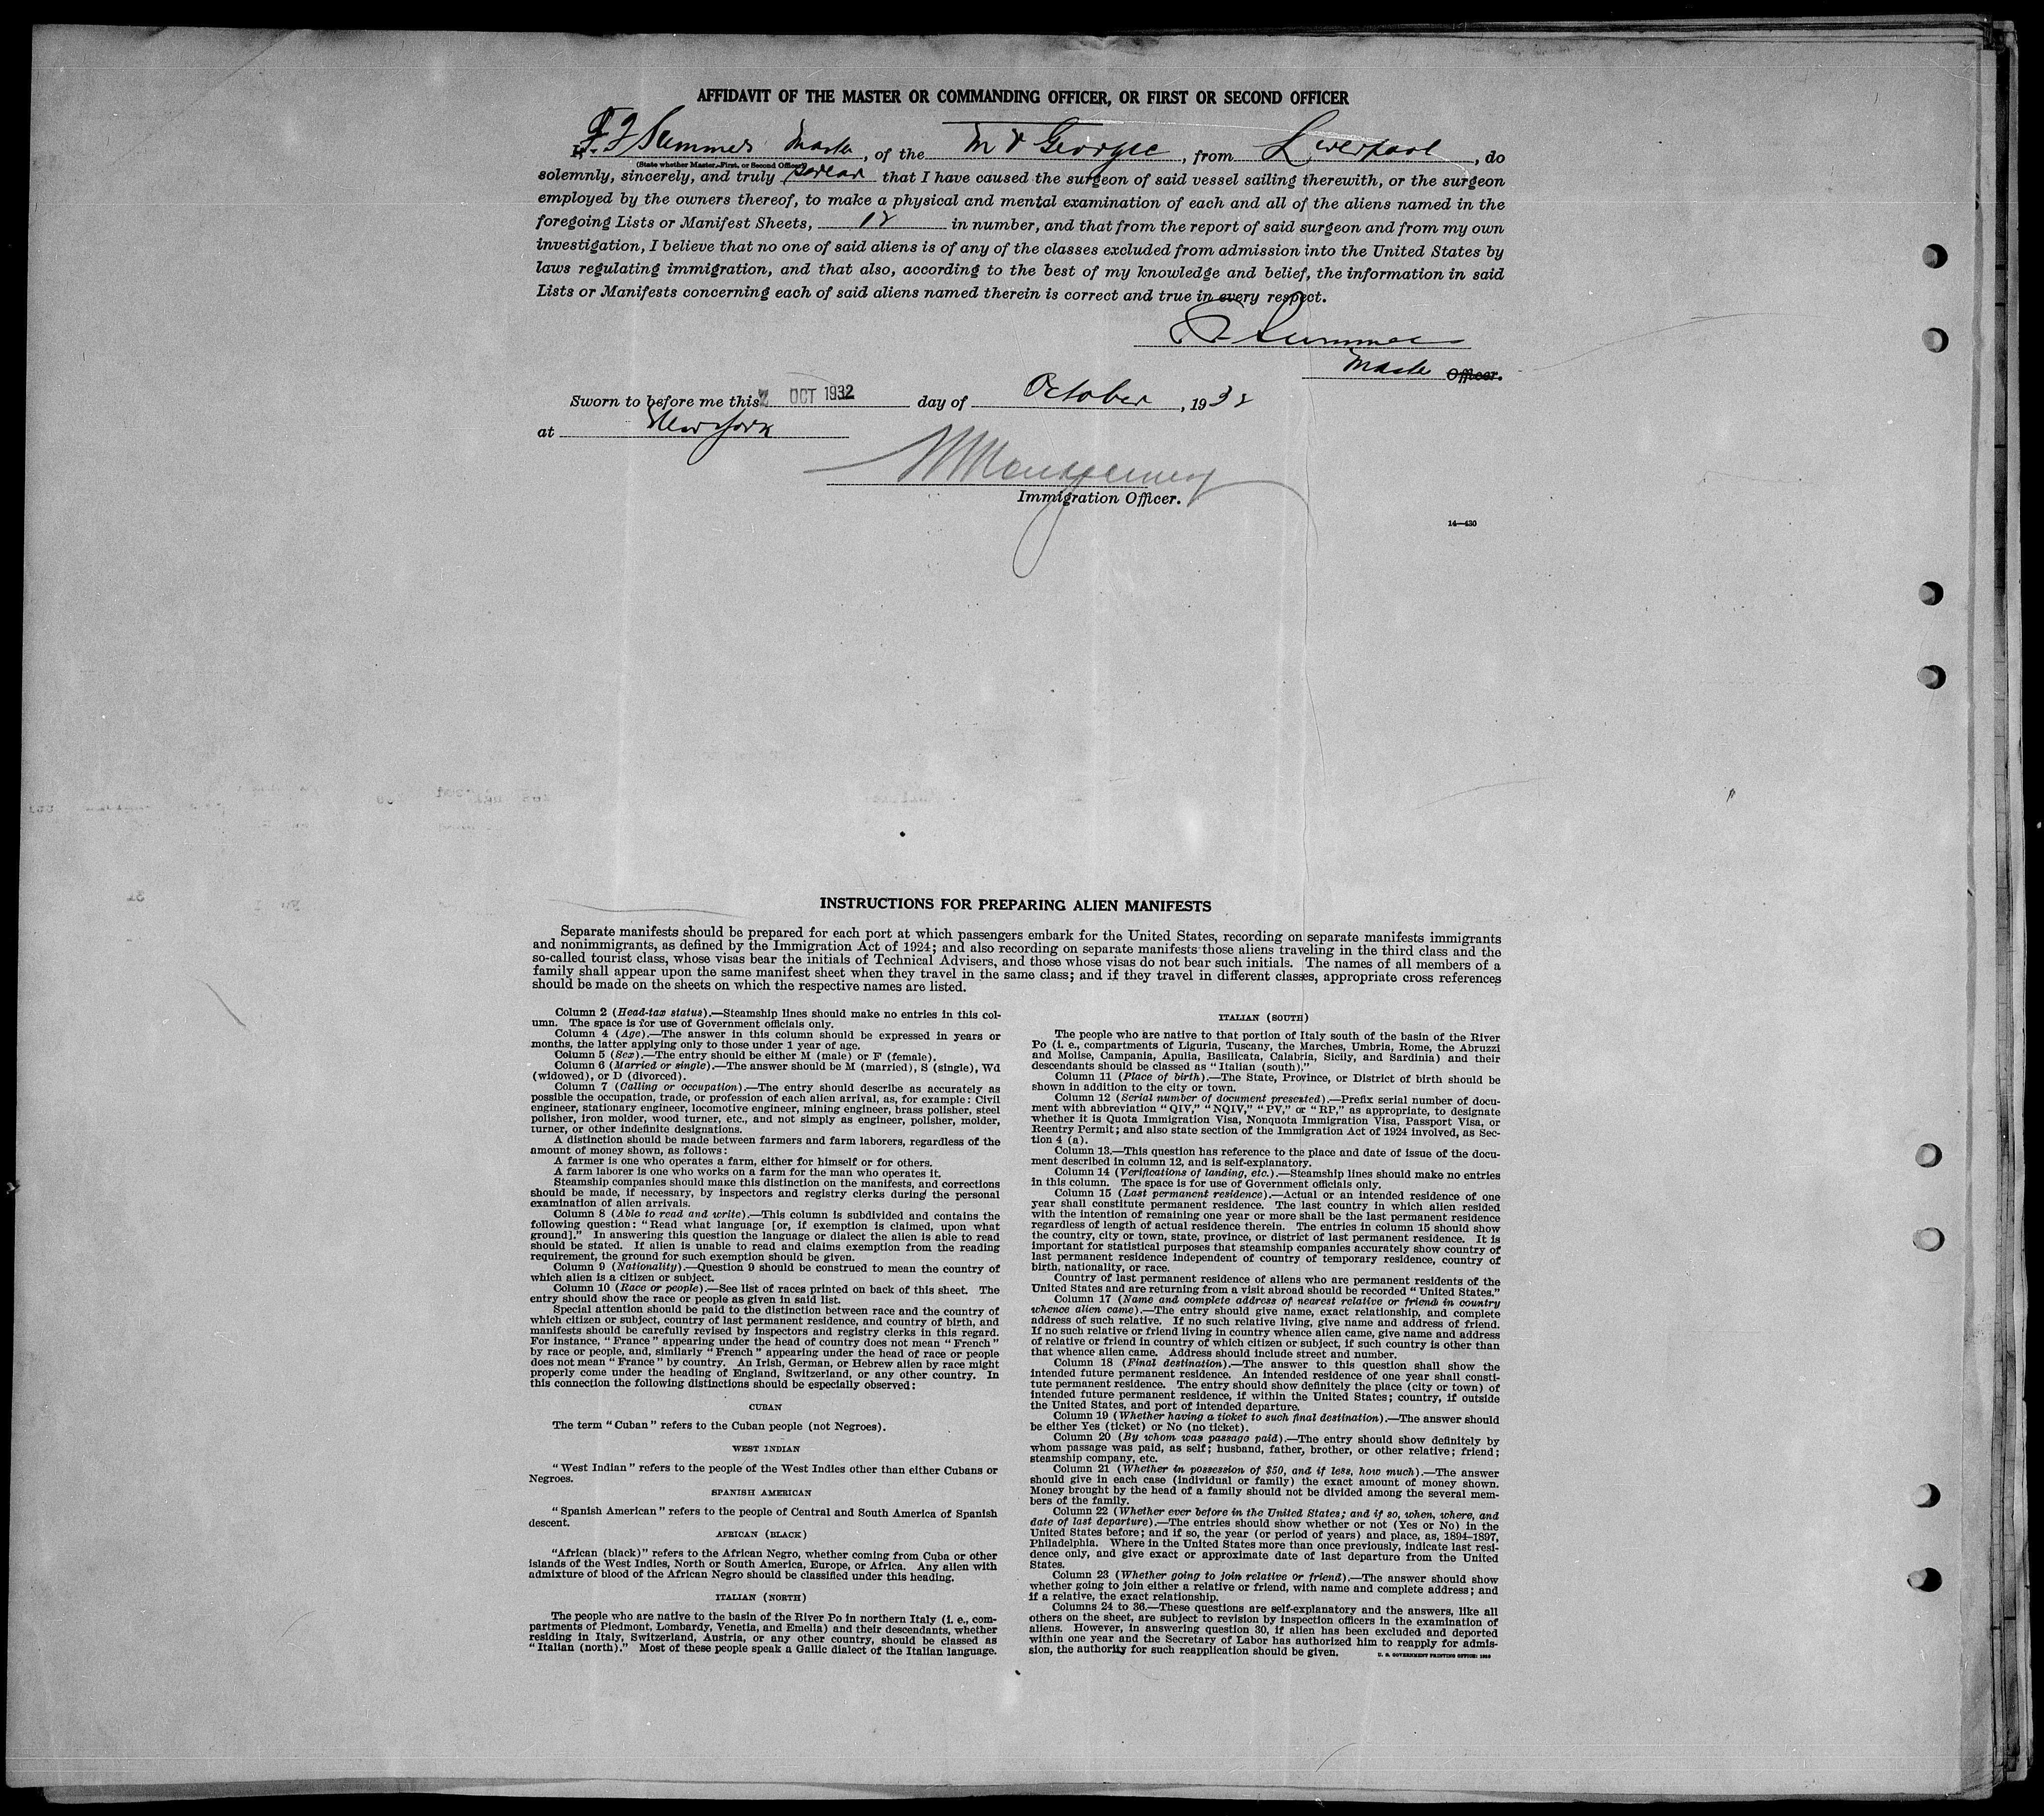 AFFIDAVIT OF THE MASTER OR COMMANDING OFFICER, OR FIRST OR SECOND OFFICER
I, F. F Summers Master, of the M V Georgic, from Liverpool, do
(State whether Master, First, or Second Officer)
solemnly, sincerely, and truly swear that I have caused the surgeon of said vessel sailing therewith, or the surgeon
employed by the owners thereof, to make a physical and mental examination of each and all of the aliens named in the
foregoing Lists or Manifest Sheets, 12 in number, and that from the report of said surgeon and from my own
investigation, I believe that no one of said aliens is of any of the classes excluded from admission into the United States by
laws regulating immigration, and that also, according to the best of my knowledge and belief, the information in said
Lists or Manifests concerning each of said aliens named therein is correct and true in every respect.
F F Summers
Master Officer.
Sworn to before me this 2 OCT 1932 day of October, 1932
at New York
Montgomery
Immigration Officer.
14—430
INSTRUCTIONS FOR PREPARING ALIEN MANIFESTS
Separate manifests should be prepared for each port at which passengers embark for the United States, recording on separate manifests immigrants
and nonimmigrants, as defined by the Immigration Act of 1924; and also recording on separate manifests those aliens traveling in the third class and the
so-called tourist class, whose visas bear the initials of Technical Advisers, and those whose visas do not bear such initials. The names of all members of a
family shall appear upon the same manifest sheet when they travel in the same class; and if they travel in different classes, appropriate cross references
should be made on the sheets on which the respective names are listed.
Column 2 (Head-tax status).—Steamship lines should make no entries in this col-
umn. The space is for use of Government officials only.
Column 4 (Age).—The answer in this column should be expressed in years or
months, the latter applying only to those under 1 year of age.
Column 5 (Sex).—The entry should be either M (male) or F (female).
Column 6 (Married or single).—The answer should be M (married), S (single), Wd
(widowed), or D (divorced).
Column 7 (Calling or occupation).—The entry should describe as accurately as
possible the occupation, trade, or profession of each alien arrival, as, for example: Civil
engineer, stationary engineer, locomotive engineer, mining engineer, brass polisher, steel
polisher, iron molder, wood turner, etc., and not simply as engineer, polisher, molder,
turner, or other indefinite designations.
A distinction should be made between farmers and farm laborers, regardless of the
amount of money shown, as follows:
A farmer is one who operates a farm, either for himself or for others.
A farm laborer is one who works on a farm for the man who operates it.
Steamship companies should make this distinction on the manifests, and corrections
should be made, if necessary, by inspectors and registry clerks during the personal
examination of alien arrivals.
Column 8 (Able to read and write).—This column is subdivided and contains the
following question: "Read what language [or, if exemption is claimed, upon what
ground]." In answering this question the language or dialect the alien is able to read
should be stated. If alien is unable to read and claims exemption from the reading
requirement, the ground for such exemption should be given.
Column 9 (Nationality).—Question 9 should be construed to mean the country of
which alien is a citizen or subject.
Column 10 (Race or people).—See list of races printed on back of this sheet. The
entry should show the race or people as given in said list.
Special attention should be paid to the distinction between race and the country of
which citizen or subject, country of last permanent residence, and country of birth, and
manifests should be carefully revised by inspectors and registry clerks in this regard.
For instance, "France" appearing under the head of country does not mean "French"
by race or people, and, similarly "French" appearing under the head of race or people
does not mean "France" by country. An Irish, German, or Hebrew alien by race might
properly come under the heading of England, Switzerland, or any other country. In
this connection the following distinctions should be especially observed:
CUBAN
The term "Cuban" refers to the Cuban people (not Negroes).
WEST INDIAN
"West Indian" refers to the people of the West Indies other than either Cubans or
Negroes.
SPANISH AMERICAN
"Spanish American" refers to the people of Central and South America of Spanish
descent.
AFRICAN (BLACK)
"African (black)" refers to the African Negro, whether coming from Cuba or other
islands of the West Indies, North or South America, Europe, or Africa. Any alien with
admixture of blood of the African Negro should be classified under this heading.
ITALIAN (NORTH)
The people who are native to the basin of the River Po in northern Italy (i. e., com-
partments of Piedmont, Lombardy, Venetia, and Emelia) and their descendants, whether
residing in Italy, Switzerland, Austria, or any other country, should be classed as
"Italian (north)." Most of these people speak a Gallic dialect of the Italian language.
ITALIAN (SOUTH)
The people who are native to that portion of Italy south of the basin of the River
Po (i. e., compartments of Liguria, Tuscany, the Marches, Umbria, Rome, the Abruzzi
and Molise, Campania, Apulia, Basilicata, Calabria, Sicily, and Sardinia) and their
descendants should be classed as "Italian (south)."
Column 11 (Place of birth).—The State, Province, or District of birth should be
shown in addition to the city or town.
Column 12 (Serial number of document presented).—Prefix serial number of docu-
ment with abbreviation "QIV," "NQIV," "PV," or "RP," as appropriate, to designate
whether it is Quota Immigration Visa, Nonquota Immigration Visa, Passport Visa, or
Reentry Permit; and also state section of the Immigration Act of 1924 involved, as Sec-
tion 4 (a).
Column 13.—This question has reference to the place and date of issue of the docu-
ment described in column 12, and is self-explanatory.
Column 14 (Verifications of landing, etc.).—Steamship lines should make no entries
in this column. The space is for use of Government officials only.
Column 15 (Last permanent residence).—Actual or an intended residence of one
year shall constitute permanent residence. The last country in which alien resided
with the intention of remaining one year or more shall be the last permanent residence
regardless of length of actual residence therein. The entries in column 15 should show
the country, city or town, state, province, or district of last permanent residence. It is
important for statistical purposes that steamship companies accurately show country of
last permanent residence independent of country of temporary residence, country of
birth, nationality, or race.
Country of last permanent residence of aliens who are permanent residents of the
United States and are returning from a visit abroad should be recorded "United States."
Column 17 (Name and complete address of nearest relative or friend in country
whence alien came).—The entry should give name, exact relationship, and complete
address of such relative. If no such relative living, give name and address of friend.
If no such relative or friend living in country whence alien came, give name and address
of relative or friend in country of which citizen or subject, if such country is other than
that whence alien came. Address should include street and number.
Column 18 (Final destination).—The answer to this question shall show the
intended future permanent residence. An intended residence of one year shall consti-
tute permanent residence. The entry should show definitely the place (city or town) of
intended future permanent residence, if within the United States; country, if outside
the United States, and port of intended departure.
Column 19 (Whether having a ticket to such final destination).—The answer should
be either Yes (ticket) or No (no ticket).
Column 20 (By whom was passage paid).—The entry should show definitely by
whom passage was paid, as self; husband, father, brother, or other relative; friend;
steamship company, etc.
Column 21 (Whether in possession of $50, and if less, how much).—The answer
should give in each case (individual or family) the exact amount of money shown.
Money brought by the head of a family should not be divided among the several mem-
bers of the family.
Column 22 (Whether ever before in the United States; and if so, when, where, and
date of last departure).—The entries should show whether or not (Yes or No) in the
United States before; and if so, the year (or period of years) and place, as, 1894–1897,
Philadelphia. Where in the United States more than once previously, indicate last resi-
dence only, and give exact or approximate date of last departure from the United
States.
Column 23 (Whether going to join relative or friend).—The answer should show
whether going to join either a relative or friend, with name and complete address; and
if a relative, the exact relationship.
Columns 24 to 36.—These questions are self-explanatory and the answers, like all
others on the sheet, are subject to revision by inspection officers in the examination of
aliens. However, in answering question 30, if alien has been excluded and deported
within one year and the Secretary of Labor has authorized him to reapply for admis-
sion, the authority for such reapplication should be given.
U. S. GOVERNMENT PRINTING OFFICE: